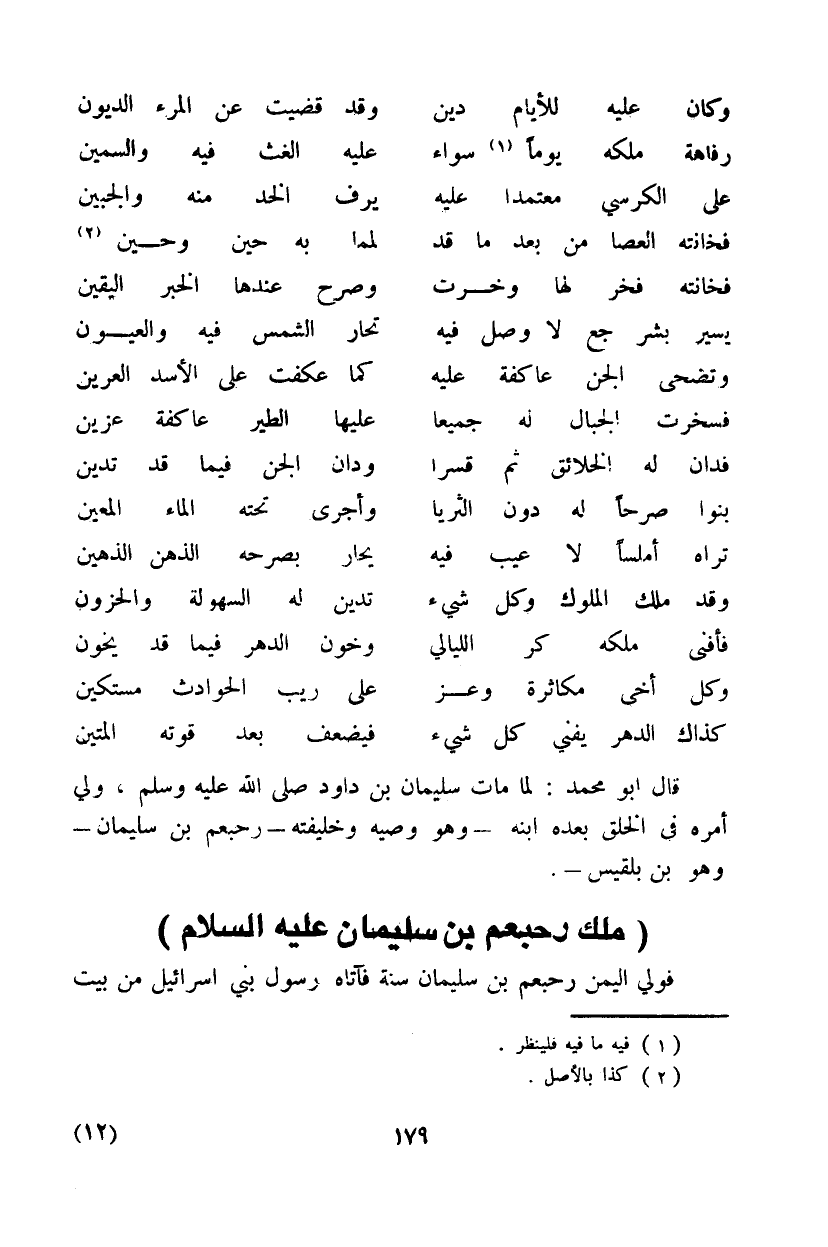 وكان عليه للأيام دين وقد قضيت عن المرء الديون
رفاهة ملكه يوماً (١) سواء عليه الغث فيه والسمين
على الكرسي معتمدا عليه يرف الخد منه والجبين
فخانته العصا من بعد ما قد لما به حين وحـــين (٢)
فخانته فخر لها وخـــرت وصرح عندها الخبر اليقين
يسير بشرجع لا وصل فيه تحار الشمس فيه والعيـــون
وتضحى الجن عاكفة عليه كما عكفت على الأسد العرين
فسخرت الجبال له جميعا عليها الطير عاكفة عزين
فدان له الخلائق ثم قسرا ودان الجن فيما قد تدين
بنوا صرحاً له دون الثريا وأجرى تحته الماء المعين
تراه أملساً لا عيب فيه يحار بصرحه الذهن الذهين
وقد ملك الملوك وكل شيء تدين له السهولة والحزون
فأفنى ملكه كر الليالي وخون الدهر فيما قد يخون
وكل أخى مكاثرة وعـــز على ريب الحوادث مستكين
كذاك الدهر يفني كل شيء فيضعف بعد قوته المتين
قال ابو محمد : لما مات سليمان بن داود صلى الله عليه وسلم ، ولي
أمره في الخلق بعده ابنه – وهو وصيه وخليفته – رحبعم بن سليمان –
وهو بن بلقيس – .
( ملك رحبعم بن سليمان عليه السلام )
فولي اليمن رحبعم بن سليمان سنة فآتاه رسول بني اسرائيل من بيت
( ١ ) فيه ما فيه فلينظر .
( ٢ ) كذا بالأصل .
١٧٩
(١٢)